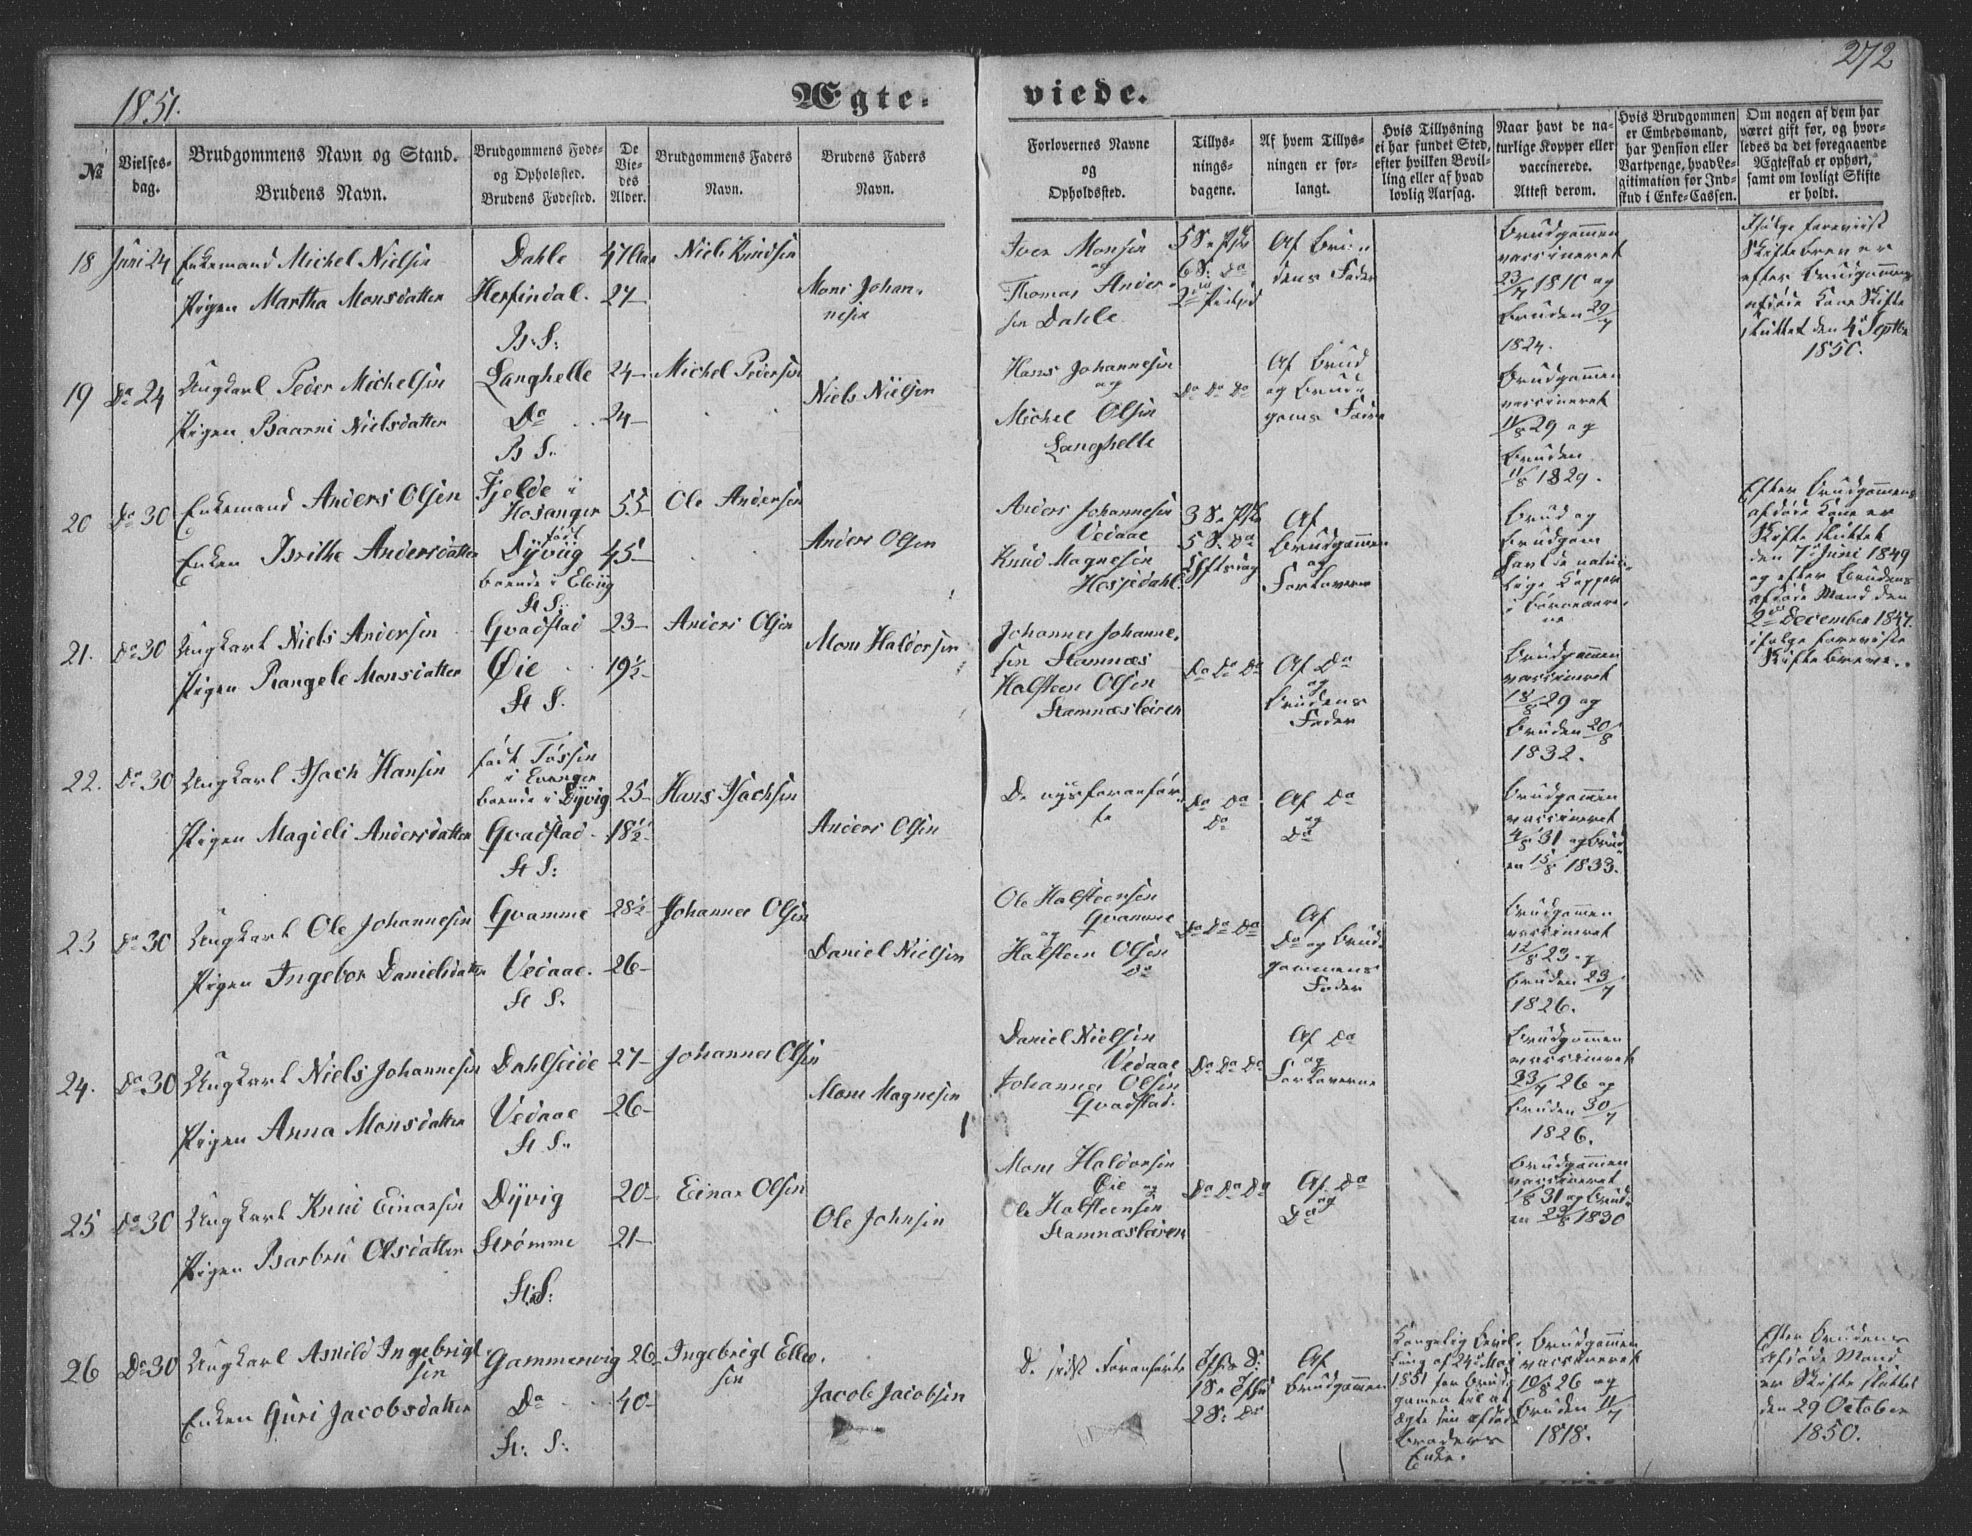 272
1851.
Ægte-
viede.
№
Vielses-
dag.
Brudgommens Navn og Stand.
Brudens Navn.
Brudgommens Føde-
og Opholdsted.
Brudens Fødested.
De
Vie-
des
Alder.
Brudgommens Faders
Navn.
Brudens Faders
Navn.
Forlovernes Navne
og
Opholdssted.
Tillys-
nings-
dagene.
Af hvem Tillys-
ningen er for-
langt.
Hvis Tillysning
ei har fundet Sted,
efter hvilken Bevil-
ling eller af hvad
lovlig Aarsag.
Naar havt de na-
turlige Kopper eller
vaccinerede.
Attest derom.
Hvis Brudgommen
er Embedsmand,
har Pension eller
Vartpenge, hvad Le-
gitimation for Ind-
skud i Enke-Cassen.
Om nogen af dem har
været gift før, og hvor-
ledes da det foregaaende
Ægteskab er ophørt,
samt om lovligt Skifte
er holdt.
18 Juni 24 Enkemand Michel Nielsen
Pigen Martha Monsdatter
Dahle
Herfindal.
B. S:
47 Aar
27
Niels Knudsen
Mons Johan-
nesen
Iver Monsen
og
Thomas Ander-
sen Dahle
Af Bru-
dens Fader
Brudgommen
vaccineret
23/7 1810 og
Bruden 29/7
1824.
Ifølge foreviist
Skiftebrev er
efter Brudgommens
afdøde Kone Skifte
sluttet den 4de Septbr
1850.
19 Do 24 Ungkarl Peder Michelsen
Pigen Baarni Nielsdatter
Langhelle
Do
B S.
24
24
Michel Pedersen
Niels Nielsen
Hans Johannesen
og
Michel Olsen
Langhelle
Do Do Do
Af Brud
og Brud-
goms Fædre
Brudgommen
vaccineret
11/8 29 og
Bruden
11/8 1829.
20 Do 30 Enkemand Anders Olsen
Enken Brithe Andersdatter
Fjelde i
Hosanger
født
Dyvig
boende i Elvig
St S.
55
45
Ole Andersen
Anders Olsen
Anders Johannesen
Vedaae
Knud Magnesen
Hesjedahl
Af
Brudgommen
og
Forloverne
Brud og
Brudgom
havt de natur-
lige Kopper
i Børneaare-
ne.
Efter Brudgommens
afdøde Kone er
Skifte sluttet
den 7de Juni 1849
og efter Brudens
afdøde Mand den
2den December 1847.
ifølge foreviste
Skiftebreve.
21. Do 30 Ungkarl Niels Andersen
Pigen Rangele Monsdatter
Qvadstad
Øie
St S.
23
19½
Anders Olsen
Mons Haldorsen
Johannes Johanne-
sen Stamnæs
Halsteen Olsen
Stamnæsleiren
Do Do Do
Af Do
og
Brudens
Fader
Brudgommen
vaccineret
18/8 29 og
Bruden 20/8
1832.
22. Do 30 Ungkarl Isach Hansen
Pigen Magieli Andersdatter
født Tøssen
i Evanger
boende i Dyvig
Qvadstad
St S:
25
18½
Hans Isachsen
Anders Olsen
De nysforanfør-
te
Do Do
Do
Af Do
og
Do
Brudgommen
vaccineret
4/8 31 og Brud-
en 15/8 1833.
23 Do 30 Ungkarl Ole Johannesen
Pigen Ingebor Danielsdatter
Qvamme
Vedaae.
St S.
28½
26
Johannes Olsen
Daniel Nielsen
Ole Halsteensen
Qvamme
og
Halsteen Olsen
Do
Do Do Do
Af
Do og Brud-
gommens
Fader
Brudgommen
vaccineret
12/8 23 og
Bruden 23/7
1826.
24. Do 30 Ungkarl Niels Johannesen
Pigen Anna Monsdatter
Dahlseide
Vedaae
St S.
27
26
Johannes Olsen
Mons Magnesen
Daniel Nielsen
Vedaae
Johannes Olsen
Qvadstad.
Do Do Do
Af Do
og
Forloverne
Brudgommen
vaccineret
23/7 26 og
Bruden 30/7
1826.
25 Do 30 Ungkarl Knud Einarsen
Pigen Barbru Olsdatter
Dyvig
Strømme
St. S:
20
21
Einar Olsen
Ole Johnsen
Mons Haldorsen
Øie og
Ole Halsteensen
Stamnæsleiren
Do Do Do
Af Do
og
Do
Brudgommen
vaccineret
1/8 31 og Brud-
en 29/8 1830
26 Do 30 Ungkarl Asvild Ingebrigt
sen
Enken Guri Jacobsdatter
Gammersvig
Do
St: S:
26
40
Ingebrigt Ellev-
sen
Jacob Jacobsen
De sidst foranførte
2 S: Do
Af
Brudgommen
Kongelig Bevil-
ling af 24de Mai
1851 for Brud-
gomen til at
ægte sin afdøde
Broders
Enke.
Brudgommen
vaccineret
10/8 26 og
Bruden 11/7
1818.
Efter Brudens
afdøde Mand
er Skifte sluttet
den 29 October
1850.